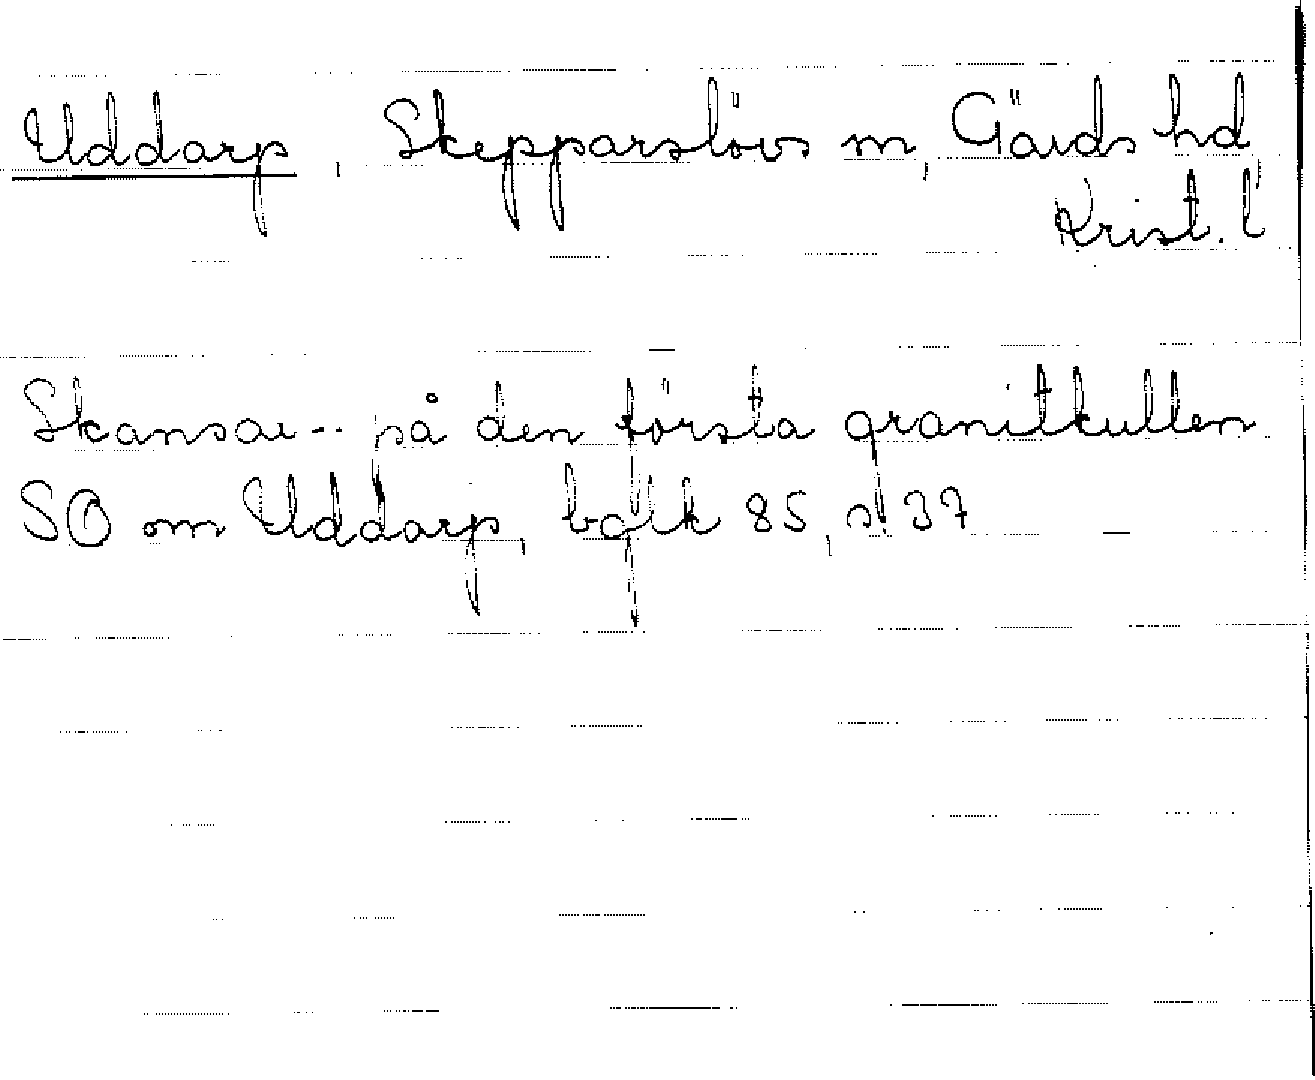 Uddarp, Skepparslövs sn, Gärds hd,
Krist. l
Skansar -- på den första granitkullen
SO om Uddarp, bolk 85, s. 37